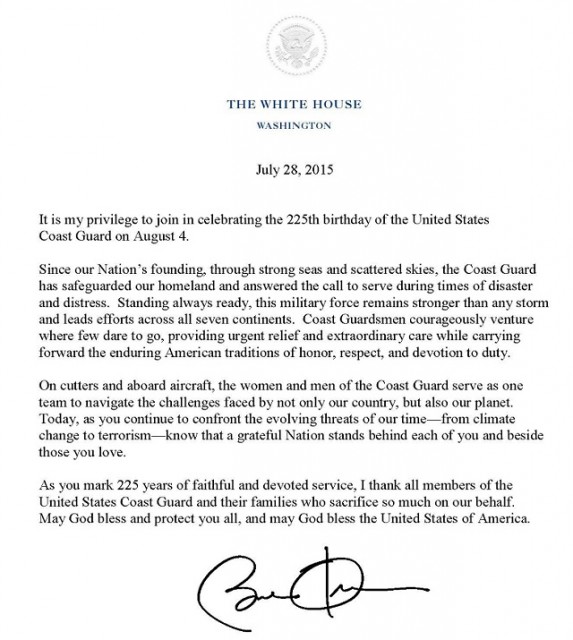 THE WHITE HOUSE
WASHINGTON
July 28, 2015
It is my privilege to join in celebrating the 225th birthday of the United States
Coast Guard on August 4.
Since our Nation's founding, through strong seas and scattered skies, the Coast Guard
has safeguarded our homeland and answered the call to serve during times of disaster
and distress.  Standing always ready, this military force remains stronger than any storm
and leads efforts across all seven continents.  Coast Guardsmen courageously venture
where few dare to go, providing urgent relief and extraordinary care while carrying
forward the enduring American traditions of honor, respect, and devotion to duty.
On cutters and aboard aircraft, the women and men of the Coast Guard serve as one
team to navigate the challenges faced by not only our country, but also our planet.
Today, as you continue to confront the evolving threats of our time—from climate
change to terrorism—know that a grateful Nation stands behind each of you and beside
those you love.
As you mark 225 years of faithful and devoted service, I thank all members of the
United States Coast Guard and their families who sacrifice so much on our behalf.
May God bless and protect you all, and may God bless the United States of America.